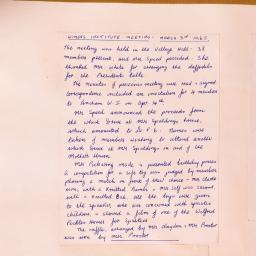 WOMENS INSTITUTE MEETING. MARCH 3rd
The meeting was held in the Village Hall. 38
members present, and Mrs Speed presided. She
thanked Mrs White for arranging the daffodils
for the Presidents table.
The minutes of previous meeting were read & signed
Correspondence included an invitation for members
to W.I. on
Mrs Speed announced the proceeds from
the Whist Drive at Mrs Spaldings house,
which amounted to Names were
taken of members wishing to attend another
Whist Drive at Mrs Spaldings in aid of the
Mrs Pickering made a presented birthday
A competition for a soft toy was judged by members
placing a match in front of their choice - Mrs
won, with a Knitted - Mrs Self was second,
with a Knitted All the toys were given
to the speaker, who was concerned with spastic
children & showed a film of one of the
Homes for Spastics
The raffle, arranged by Mrs Claydon & Mrs Proctor
was won by Mrs Proctor